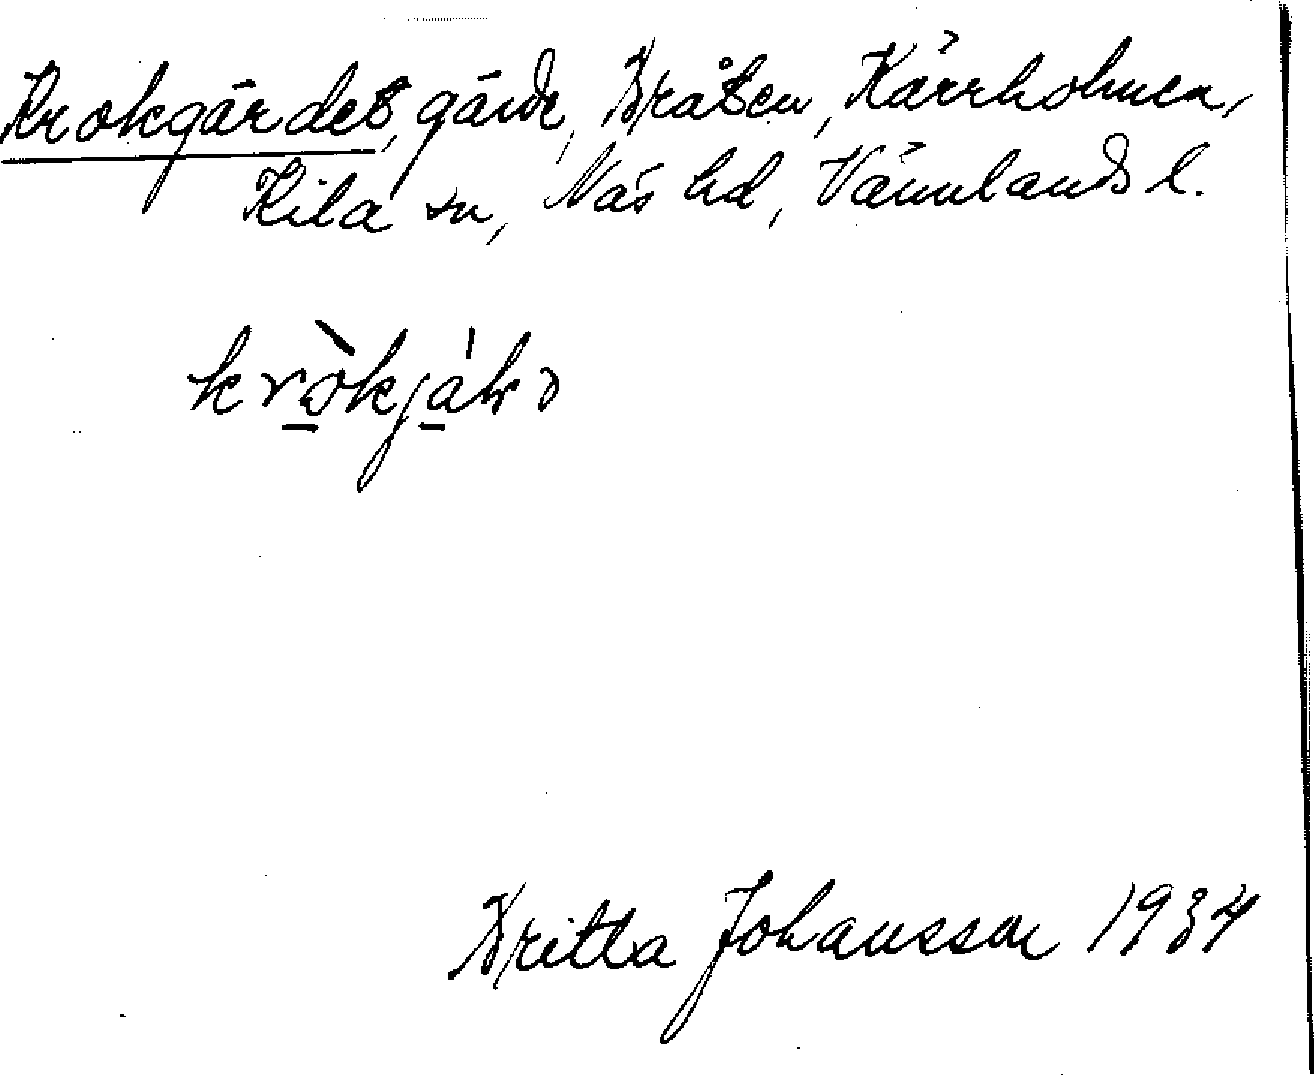 Krokgärdet, gärde, Bråten, Kärrholmen,
Kila sn, Näs hd, Värmlands l.
Britta Johansson 1934